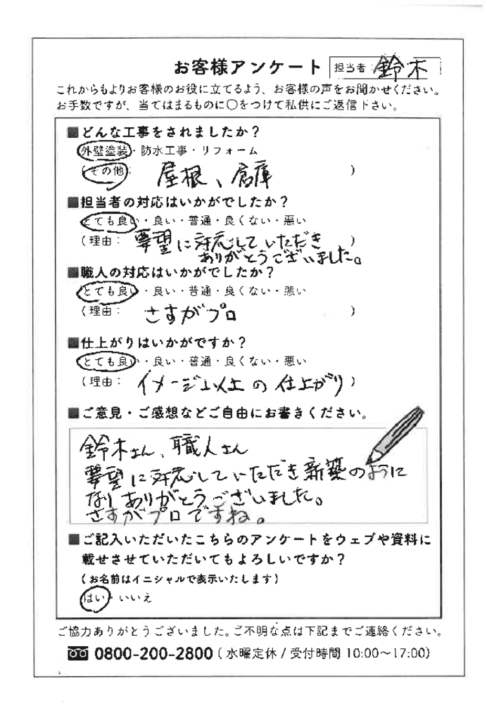 お客様アンケート 担当者 鈴木
これからもよりお客様のお役に立てるよう、お客様の声をお聞かせください。
お手数ですが、当てはまるものに○をつけて私供にご返信下さい。
■どんな工事をされましたか？
外壁塗装・防水工事・リフォーム
(その他: 屋根、倉庫 )
■担当者の対応はいかがでしたか？
とても良い・良い・普通・良くない・悪い
(理由: 要望に対応していただき )
ありがとうございました。
■職人の対応はいかがでしたか？
とても良い・良い・普通・良くない・悪い
(理由: さすがプロ )
■仕上がりはいかがですか？
とても良い・良い・普通・良くない・悪い
(理由: イメージ以上の仕上がり )
■ご意見・ご感想などご自由にお書きください。
鈴木さん、職人さん
要望に対応していただき新築のように
なりありがとうございました。
さすがプロですね。
■ご記入いただいたこちらのアンケートをウェブや資料に
載せさせていただいてもよろしいですか？
(お名前はイニシャルで表示いたします)
はい・いいえ
ご協力ありがとうございました。ご不明な点は下記までご連絡ください。
0800-200-2800 (水曜定休 / 受付時間 10:00～17:00)